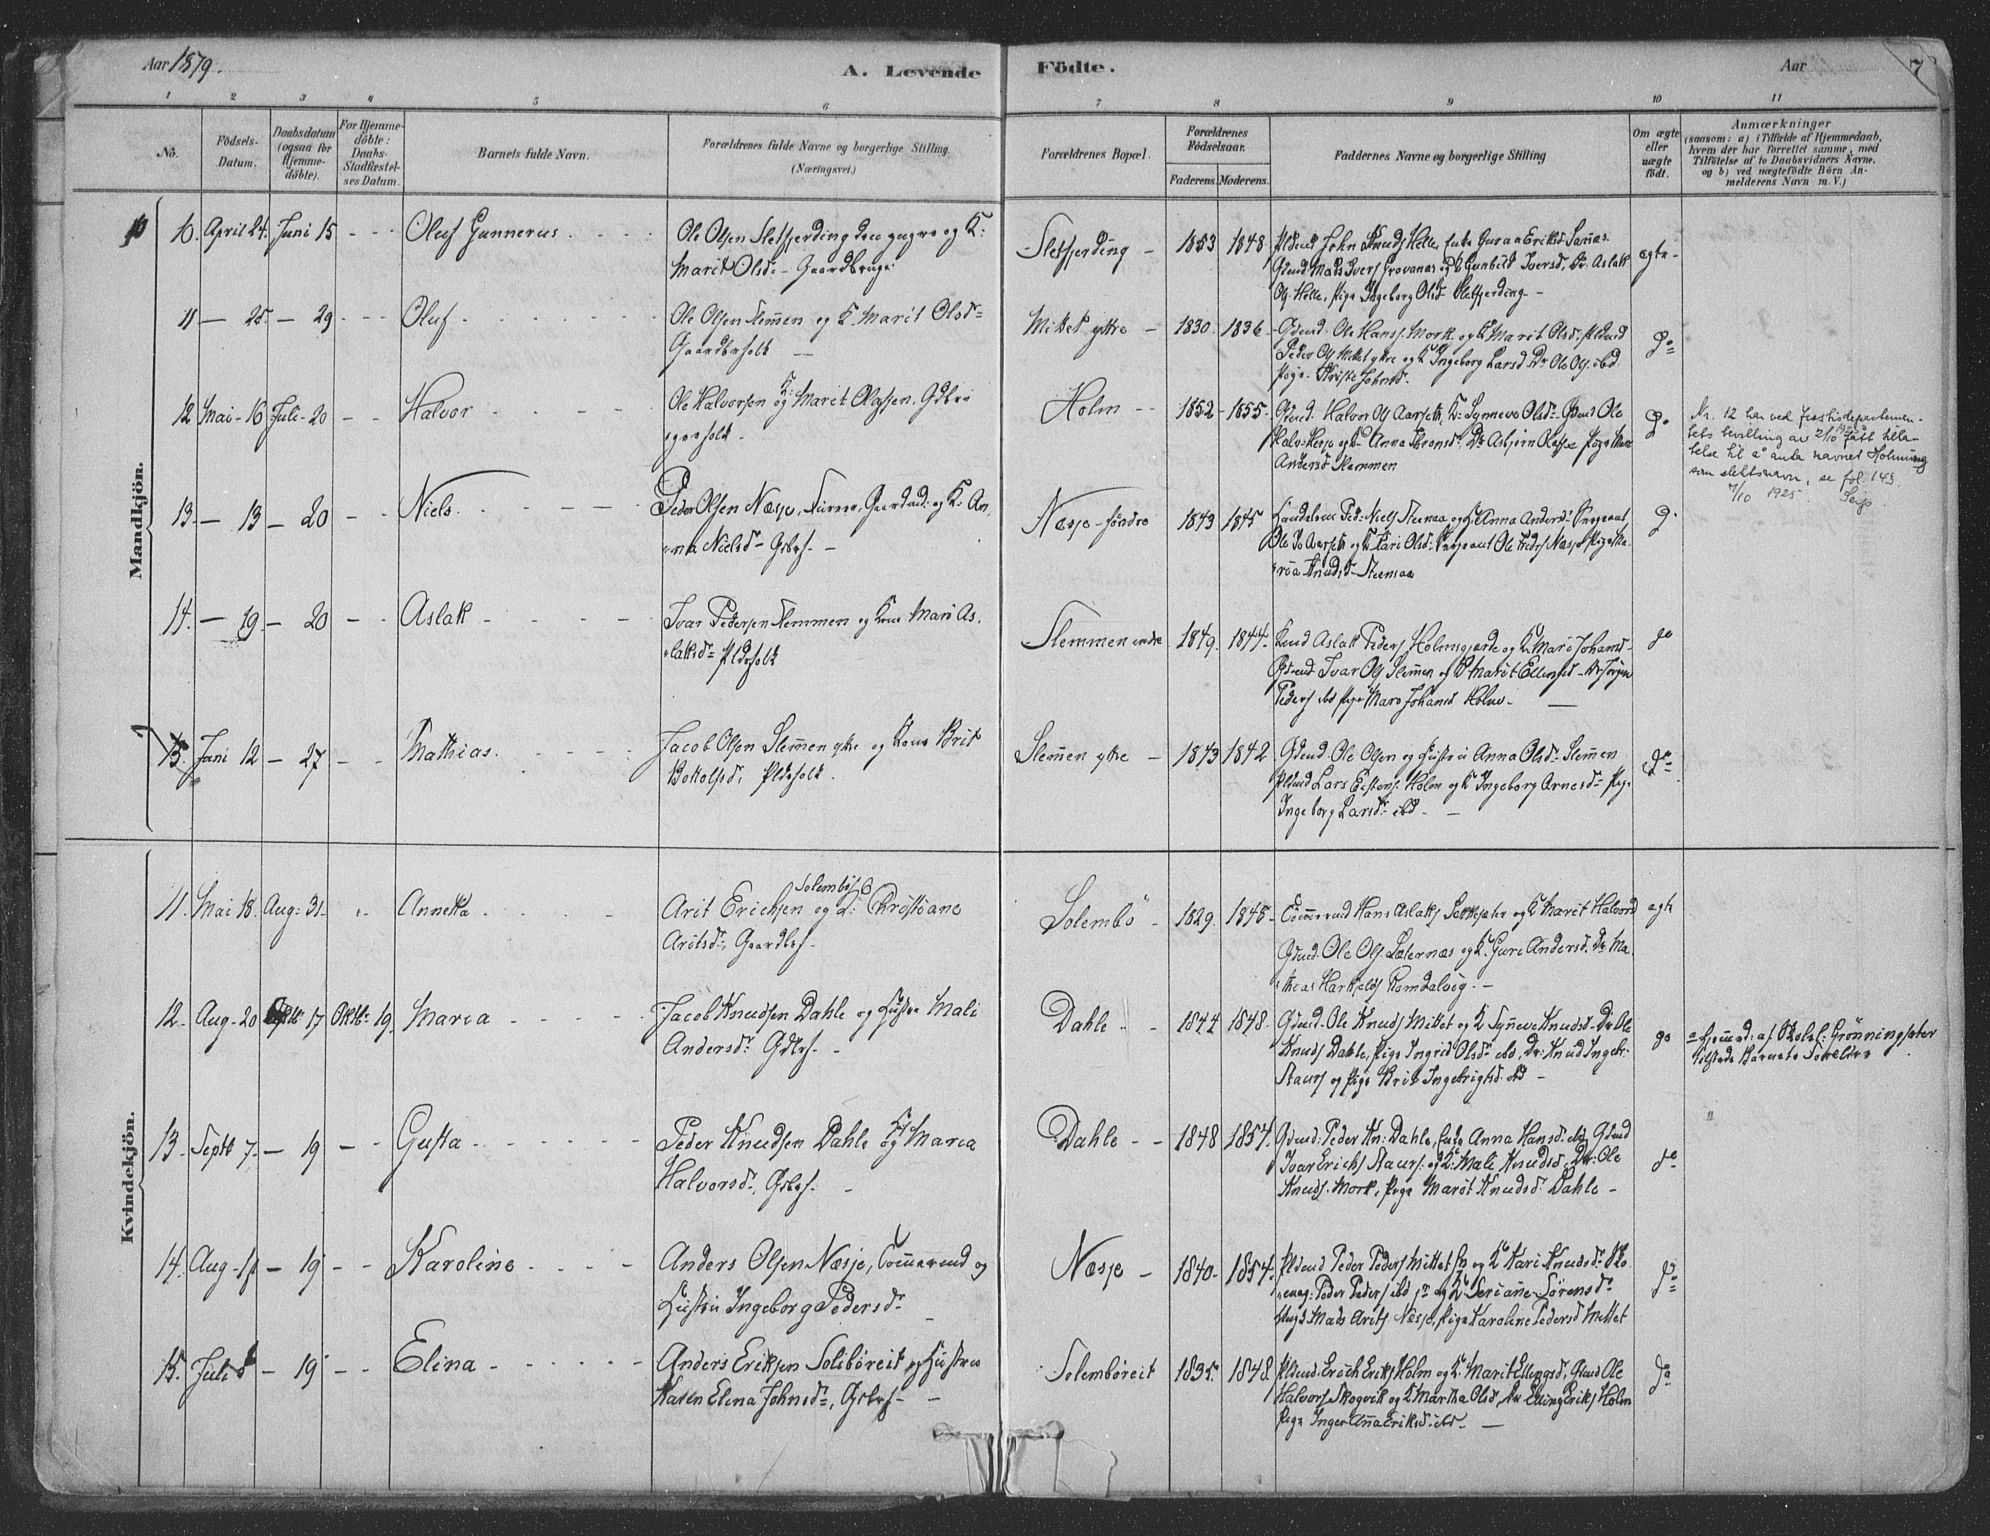 Aar 1879.
A. Levende Födte.
Aar
7
1 2 3 4 5 6 7 8 9 10 11
No.
Födsels-
Datum.
Daabsdatum
(ogsaa for
Hjemme-
döbte).
For Hjemme-
döbte:
Daabs-
Stadfæstel-
ses Datum.
Barnets fulde Navn.
Forældrenes fulde Navne og borgerlige Stilling
(Næringsvei.)
Forældrenes Bopæl.
Forældrenes
Födselsaar.
Faderens. Moderens.
Faddernes Navne og borgerlige Stilling
Om ægte
eller
uægte
födt.
Anmærkninger
(saasom: a) i Tilfælde af Hjemmedaab,
hvem der har forrettet samme, med
Tilföielse af to Daabsvidners Navne.
og b) ved uægtefödte Börn An-
melderens Navn m. V.)
Mandkjön.
10. April 24. Juni 15 Oluf Gunnerus
Ole Olsen Sletfjerding den yngre og K:
Marit Olsd. Gaardbruge
Sletfjerding 1853 1848
Pldmd John Knuds Helle, Enke Guraa Eriksd
Gdmd Mads Ivers Grovanæs og K Gunhild Iversd, Dr. Aslak
Ols. Helle, Pige Ingeborg Olsd Sletfjerding
ægte
11 25 29 Oluf
Ole Olsen Slemmen og K. Marit Olsd
Gaardbrfolk
Mittet ytre 1830 1836
Gdmd. Ole Hans. Mork og K Marit Olsd. Pldmd
Peder Ols Mittet ytre og K Ingeborg Larsd Dr Ole Ols. ibd
Pige Johnsd.
do
12 Mai 16 Juli 20 Halvor
Ole Halvorsen og K: Marit Olafsen, Gdbru
gerfolk
Holm 1852 1855
Gdmd. Halvor Ols Aarseth, K: Synneve Olsd. Ole
Halv. og K Anna Dr Asbjørn Pige
Andersd Slemmen
do
Nr. 12 har ved Justisdepartemen-
tets bevilling av 2/10 1925 fått tilla-
telse til å anta navnet Holmung
som slektsnavn, se fol. 143.
7/10 1925. Seip.
13. 13 20 Niels
Peder Olsen Næsje, Gaardmd. og K. An
na Nielsd. Gbrf.
Næsje söndre 1843 1845
Ped: Niels Steenaa og K: Anna Andersd. Sergeant
Ole Aarseth og K Kari Olsd: Sergeant Ole Næsje, Pige Ka
Knudsd Steenaa
14. 19 20 Aslak
Ivar Pedersen Slemmen og Kone Mari As
laksd Pldsfolk
Slemmen indre 1849 1844
Aslak Peders Holmsgjerde og K Mari Johansd
Gdmd Ivar Ols Slemen og K Marit Ellensd
Peders ibd Pige Mari Johansd Holm
do
15. Juni 12 27 Mathias
Jacob Olsen Slemmen ytre og Kone Brit
Bottolfsd, Pldsfolk.
Slemmen ytre 1843 1842
Gdmd. Ole Olsen og Hustru Anna Olsd. Slemmen
Pldmd Lars Holm og K Ingeborg Arnesd. Pige
Ingeborg Larsd. ibd.
do
Kvindekjön.
11. Mai 18. Aug: 31. Annetta
Arit Erichsen Solembö og K: Christiane
Aritsd., Gaardbrf.
Solembö 1829 1848
Hans Aslaks og K Marit Halvord
Gdmd. Ole Ols. og K. Guri Andersd. Dr. Ma
thias
ægte
12. Aug. 20 Septb 17 Oktb. 19. Maria
Jacob Knudsen Dahle og Hustru Mali
Andersd. Gdbrf.
Dahle 1844 1848
Gdmd. Ole Knuds Mittet og K Synneve Knudsd. Dr Ole
Knuds Dahle, Pige Ingrid Olsd ibd, Dr: Knud Ingebr.
Staurs og Pige Brit Ingebrigtsd. ibd
do
Hjemmed: af Grönningsæter
tilstede Barnets Forældre
13. Septb 7. 19 Gusta
Peder Knudsen Dahle og K Maria
Halvorsd., Gbrf.
Dahle 1848 1857
Gdmd: Peder Kn: Dahle, Enke Anna Hansd. ibd, Gdmd
Ivar Erichs Staurs: og K: Mali Knudsd. Dr: Ole
Knuds. Mork, Pige Marit Knudsd. Dahle
do
14. Aug 19 Karoline
Anders Olsen Næsje, Tömmermd og
Hustru Ingeborg Pedersd.
Næsje 1840 1854
Pldmd Peder Peders Mittet og K Kari Knudsd.
Peder Peders ibd og K Seriane Sörensd.
Mads Arits Næsje, Pige Karoline Pedersd Mittet
do
15. Juli 19 Elina
Anders Eriksen Solböreit og Hustru
Karen Elina Johnsd., Gbrf.
Solemböreit 1835 1848
Pldmd. Erich Eriks Holm og K. Marit Ellingsd, Gdmd Ole
Halvors Skogvik og K Martha Olsd, Dr Elling Eriks Holm
Pige Inger Anna Eriksd. ibd.
do